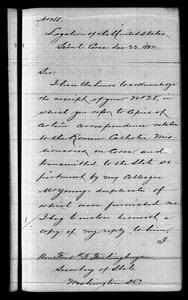 Legation of the United States
Seoul Corea Dec 22, 188
Sir:
I have the honor to acknowledge
the receipt of your No 28, in
which you refer to copies of
certain correspondence relative
to the Roman Catholic Mis
sionaries in Corea, and
transmitted to the State De
partment by my Colleague
Mr Young; duplicates of
which were furnished me
I beg to enclose herewith a
copy of my reply to him.
I
Hon. Fredk T. Frelinghuysen
Secretary of State
Washington D.C.